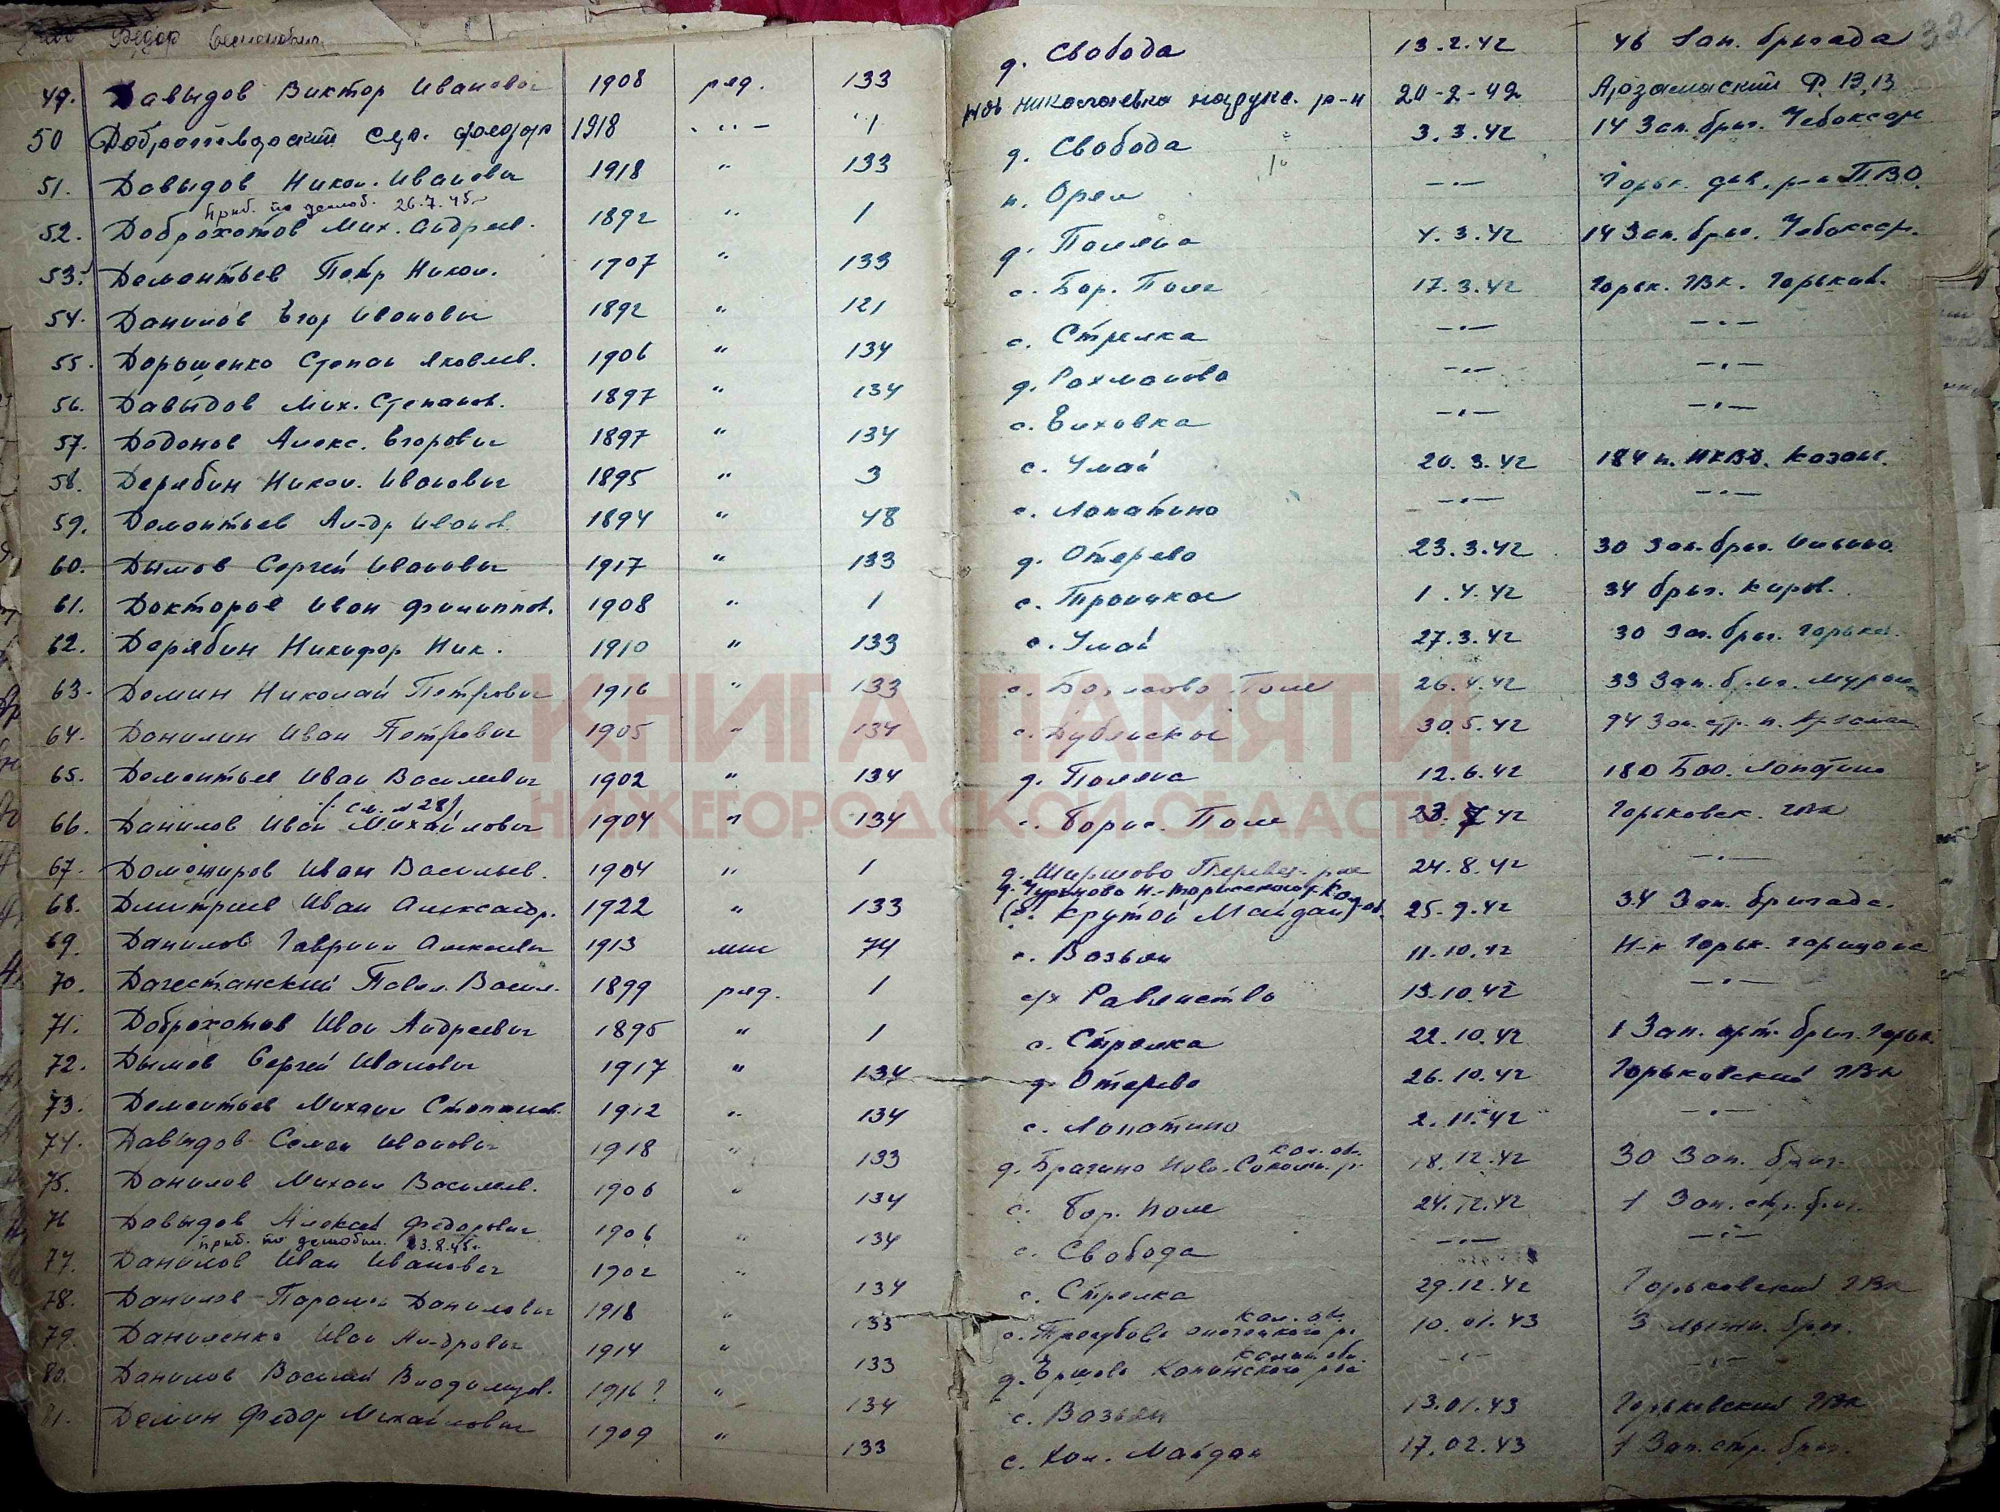 Федор Семенович
32
49. Давыдов Виктор Иванович 1908 ряд. 133 д. Свобода 13.2.42 46 Зап. бригада
50 Доброзевдоский 1918 1 Николаевка р-н 20-2-42 Арзамаский
51. Давыдов Никол. Иванович 1918 " 133 д. Свобода 3.3.42 14 Зап. бриг. Чебоксар
Приб. по демоб. 26.7.45г.
52. Доброхотов Мих. Андреев. 1892 " 1 п. Орел —"— Горьк. див. р-на ПВО.
53. Дементьев Петр Никол. 1907 " 133 д. Поляна 4.3.42 14 Зап. бриг. Чебоксар.
54. Данилов Егор Иванович 1892 " 121 с. Бор. Поле 17.3.42 Горьк. ГВК. Горьков.
55. Дорошенко Степан Яковлев. 1906 " 134 с. Стрелка —"— —"—
56. Давыдов Мих. Степанов. 1897 " 134 д. Рахманова —"— —"—
57. Додонов Алекс. Егорович 1897 " 134 с. Елховка —"— —"—
58. Дерябин Никол. Иванович 1895 " 3 с. Умай 20.3.42 184 п. НКВД. Казань.
59. Дементьев Ал-др Иванов. 1894 " 48 с. Лопатино —"— —"—
60. Дымов Сергей Иванович 1917 " 133 д. Отарево 23.3.42 30 Зап. бриг.
61. Докторов Иван Филиппов. 1908 " 1 с. Троицкое 1.4.42 34 бриг. Киров.
62. Дерябин Никифор Ник. 1910 " 133 с. Умай 27.3.42 30 Зап. бриг. Горьков.
63. Демин Николай Петрович 1916 " 133 с. Борисово Поле 26.4.42 33 Зап. бриг. Муром
64. Данилин Иван Петрович 1905 " 134 с. Дубенское 30.5.42 94 Зап. стр. п. Арзамас
65. Дементьев Иван Василевич 1902 " 134 д. Поляна 12.6.42 180 Бао. Лопатино
(см. №28)
66. Данилов Иван Михайлович 1904 " 134 с. Борис. Поле 23.7.42 Горьковск. ГВК
67. Доможиров Иван Васильев. 1904 " 1 д. Ширшово Перевоз. р-на 24.8.42 —"—
68. Дмитриев Иван Александр. 1922 " 133 (с. Крутой Майдан) 25.9.42 34 Зап. бригада.
69. Данилов Гаврил Алексеевич 1913 74 с. Вазьян 11.10.42 Н-к Горьк. гарнизона
70. Дагестанский Павел. Васил. 1899 ряд. 1 с/х Равенство 13.10.42 —"—
71. Доброхотов Иван Андреевич 1895 " 1 с. Стрелка 22.10.42 1 Зап. арт. бриг. Горьк.
72. Дымов Сергей Иванович 1917 " 134 д. Отарево 26.10.42 Горьковский ГВК
73. Дементьев Михаил Степанов. 1912 " 134 с. Лопатино 2.11.42 —"—
74. Давыдов Семен Иванович 1918 " 133 д. Брагино Ново-Сокольн. р. Кал. об. 18.12.42 30 Зап. бриг.
75. Данилов Михаил Василев. 1906 " 134 с. Бор. Поле 24.12.42 1 Зап. стр. бриг.
76 Давыдов Алексей Федорович 1906 " 134 с. Свобода —"— —"—
приб. по демобил. 23.8.45г.
77. Данилов Иван Иванович 1902 " 134 с. Стрелка 29.12.42 Горьковский ГВК
78. Данилов Данилович 1918 " 133 Кал. об. 10.01.43 3 лыжн. бриг.
79. Даниленко Иван Ал-дрович 1914 " 133 д. Ершово Калинского р-на Калин. обл. —"— —"—
80. Данилов Василий Владимиров. 1916? " 134 с. Вазьян 13.01.43 Горьковский ГВК
81. Демин Федор Михайлович 1909 " 133 с. Кам. Майдан 17.02.43 1 Зап. стр. бриг.
КНИГА ПАМЯТИ
НИЖЕГОРОДСКОЙ ОБЛАСТИ